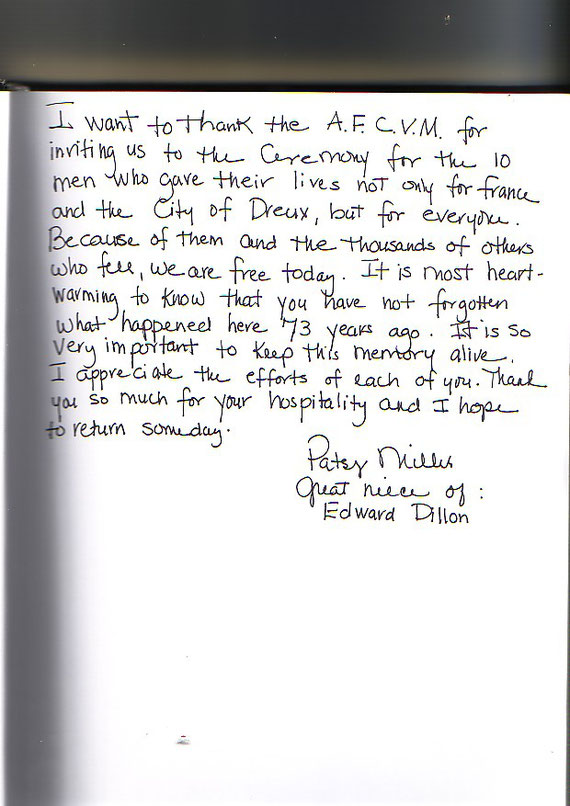 I want to thank the A.F.C.V.M. for
inviting us to the Ceremony for the 10
men who gave their lives not only for france
and the City of Dreux, but for everyone.
Because of them and the thousands of others
who fell, we are free today. It is most heart-
warming to know that you have not forgotten
what happened here 73 years ago. It is so
very important to keep this memory alive.
I appreciate the efforts of each of you. Thank
you so much for your hospitality and I hope
to return someday.
Patsy Miller
Great niece of :
Edward Dillon